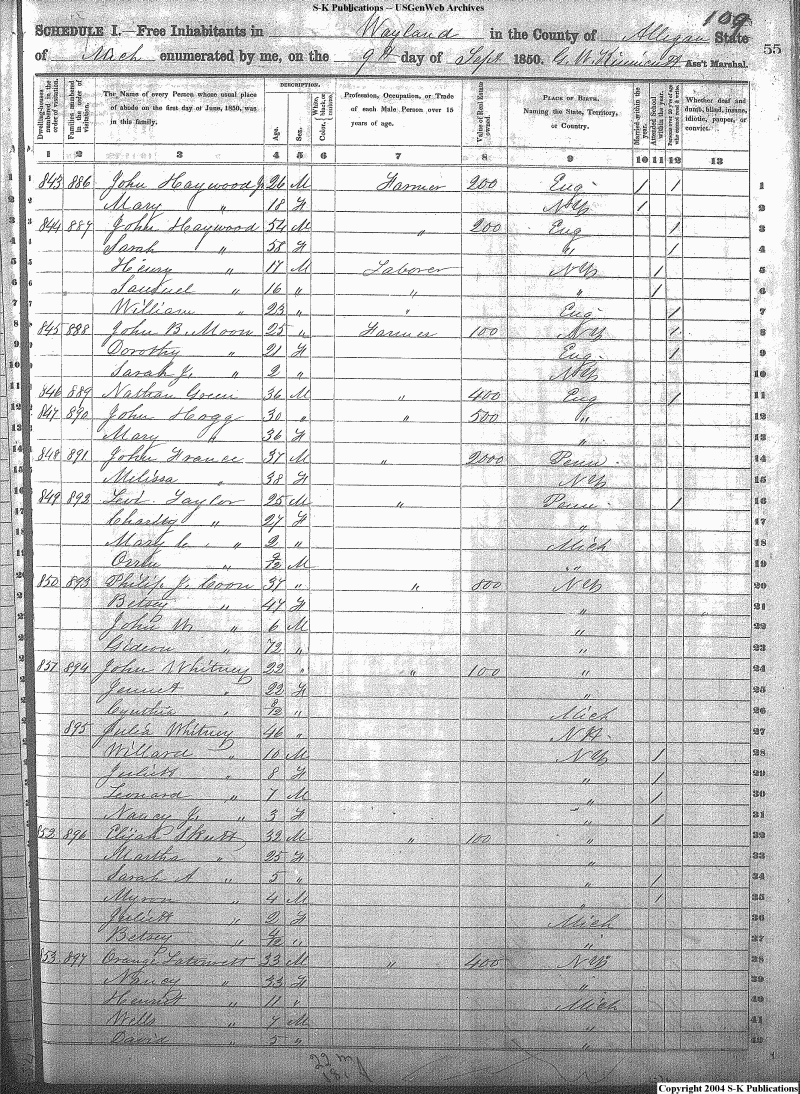 S-K Publications -- USGenWeb Archives
109
SCHEDULE I.—Free Inhabitants in Wayland in the County of Allegan State
of Mich enumerated by me, on the 9th day of Sept. 1850. G. W. Kinnicutt Ass't Marshal.
55
Dwelling-houses numbered in the order of visitation. Families numbered in the order of visitation. The Name of every Person whose usual place of abode on the first day of June, 1850, was in this family. DESCRIPTION. Age. Sex. White, black, or mulatto. Color Profession, Occupation, or Trade of each Male Person over 15 years of age. Value of Real Estate owned. PLACE OF BIRTH. Naming the State, Territory, or Country. Married within the year. Attended School within the year. Persons over 20 y'rs of age who cannot read & write. Whether deaf and dumb, blind, insane, idiotic, pauper, or convict.
1 2 3 4 5 6 7 8 9 10 11 12 13
1 843 886 John Haywood Jr 26 M Farmer 200 Eng. / / 1
2 Mary " 18 F N Y / 2
3 844 887 John Haywood 54 M " 200 Eng / 3
4 Sarah " 58 F " / 4
5 Henry " 17 M Laborer N Y / 5
6 Samuel " 16 " " " / 6
7 William " 23 " " Eng. / 7
8 845 888 John B. Moon 25 " Farmer 100 N Y / 8
9 Dorothy " 21 F Eng. / 9
10 Sarah J. " 2 " N Y 10
11 846 889 Nathan Green 36 M " 400 Eng / 11
12 847 890 John Hogg 30 " " 500 " 12
13 Mary " 36 F " 13
14 848 891 John France 37 M " 2000 Penn. 14
15 Melissa " 38 F N Y 15
16 849 892 Levi Taylor 25 M " Penn. / 16
17 Charity " 27 F " 17
18 Mary C. " 2 " Mich 18
19 Orrin " 9/12 M " 19
20 850 893 Philip J. Coon 37 " " 800 N Y 20
21 Betsey " 47 F " 21
22 John W. " 6 M " 22
23 Gideon " 72 " " 23
24 851 894 John Whitney 22 " " 100 " 24
25 Jennet " 22 F " 25
26 Cynthia " 8/12 " Mich 26
27 895 Julia Whitney 46 " N H. 27
28 Willard " 10 M N Y / 28
29 Juliett " 8 F " / 29
30 Leonard " 7 M " / 30
31 Nancy J. " 3 F " / 31
32 852 896 Elijah Skutt 32 M " 100 " 32
33 Martha " 25 F " 33
34 Sarah A " 5 " " / 34
35 Myron " 4 M " / 35
36 Juliett " 2 F Mich 36
37 Betsey " 4/12 " " 37
38 853 897 Orange 33 M " 400 N Y 38
39 Nancy " 33 F " 39
40 " 11 " Mich 40
41 Wells " 7 M " 41
42 David " 5 " " 42
22 m
Copyright 2004 S-K Publications